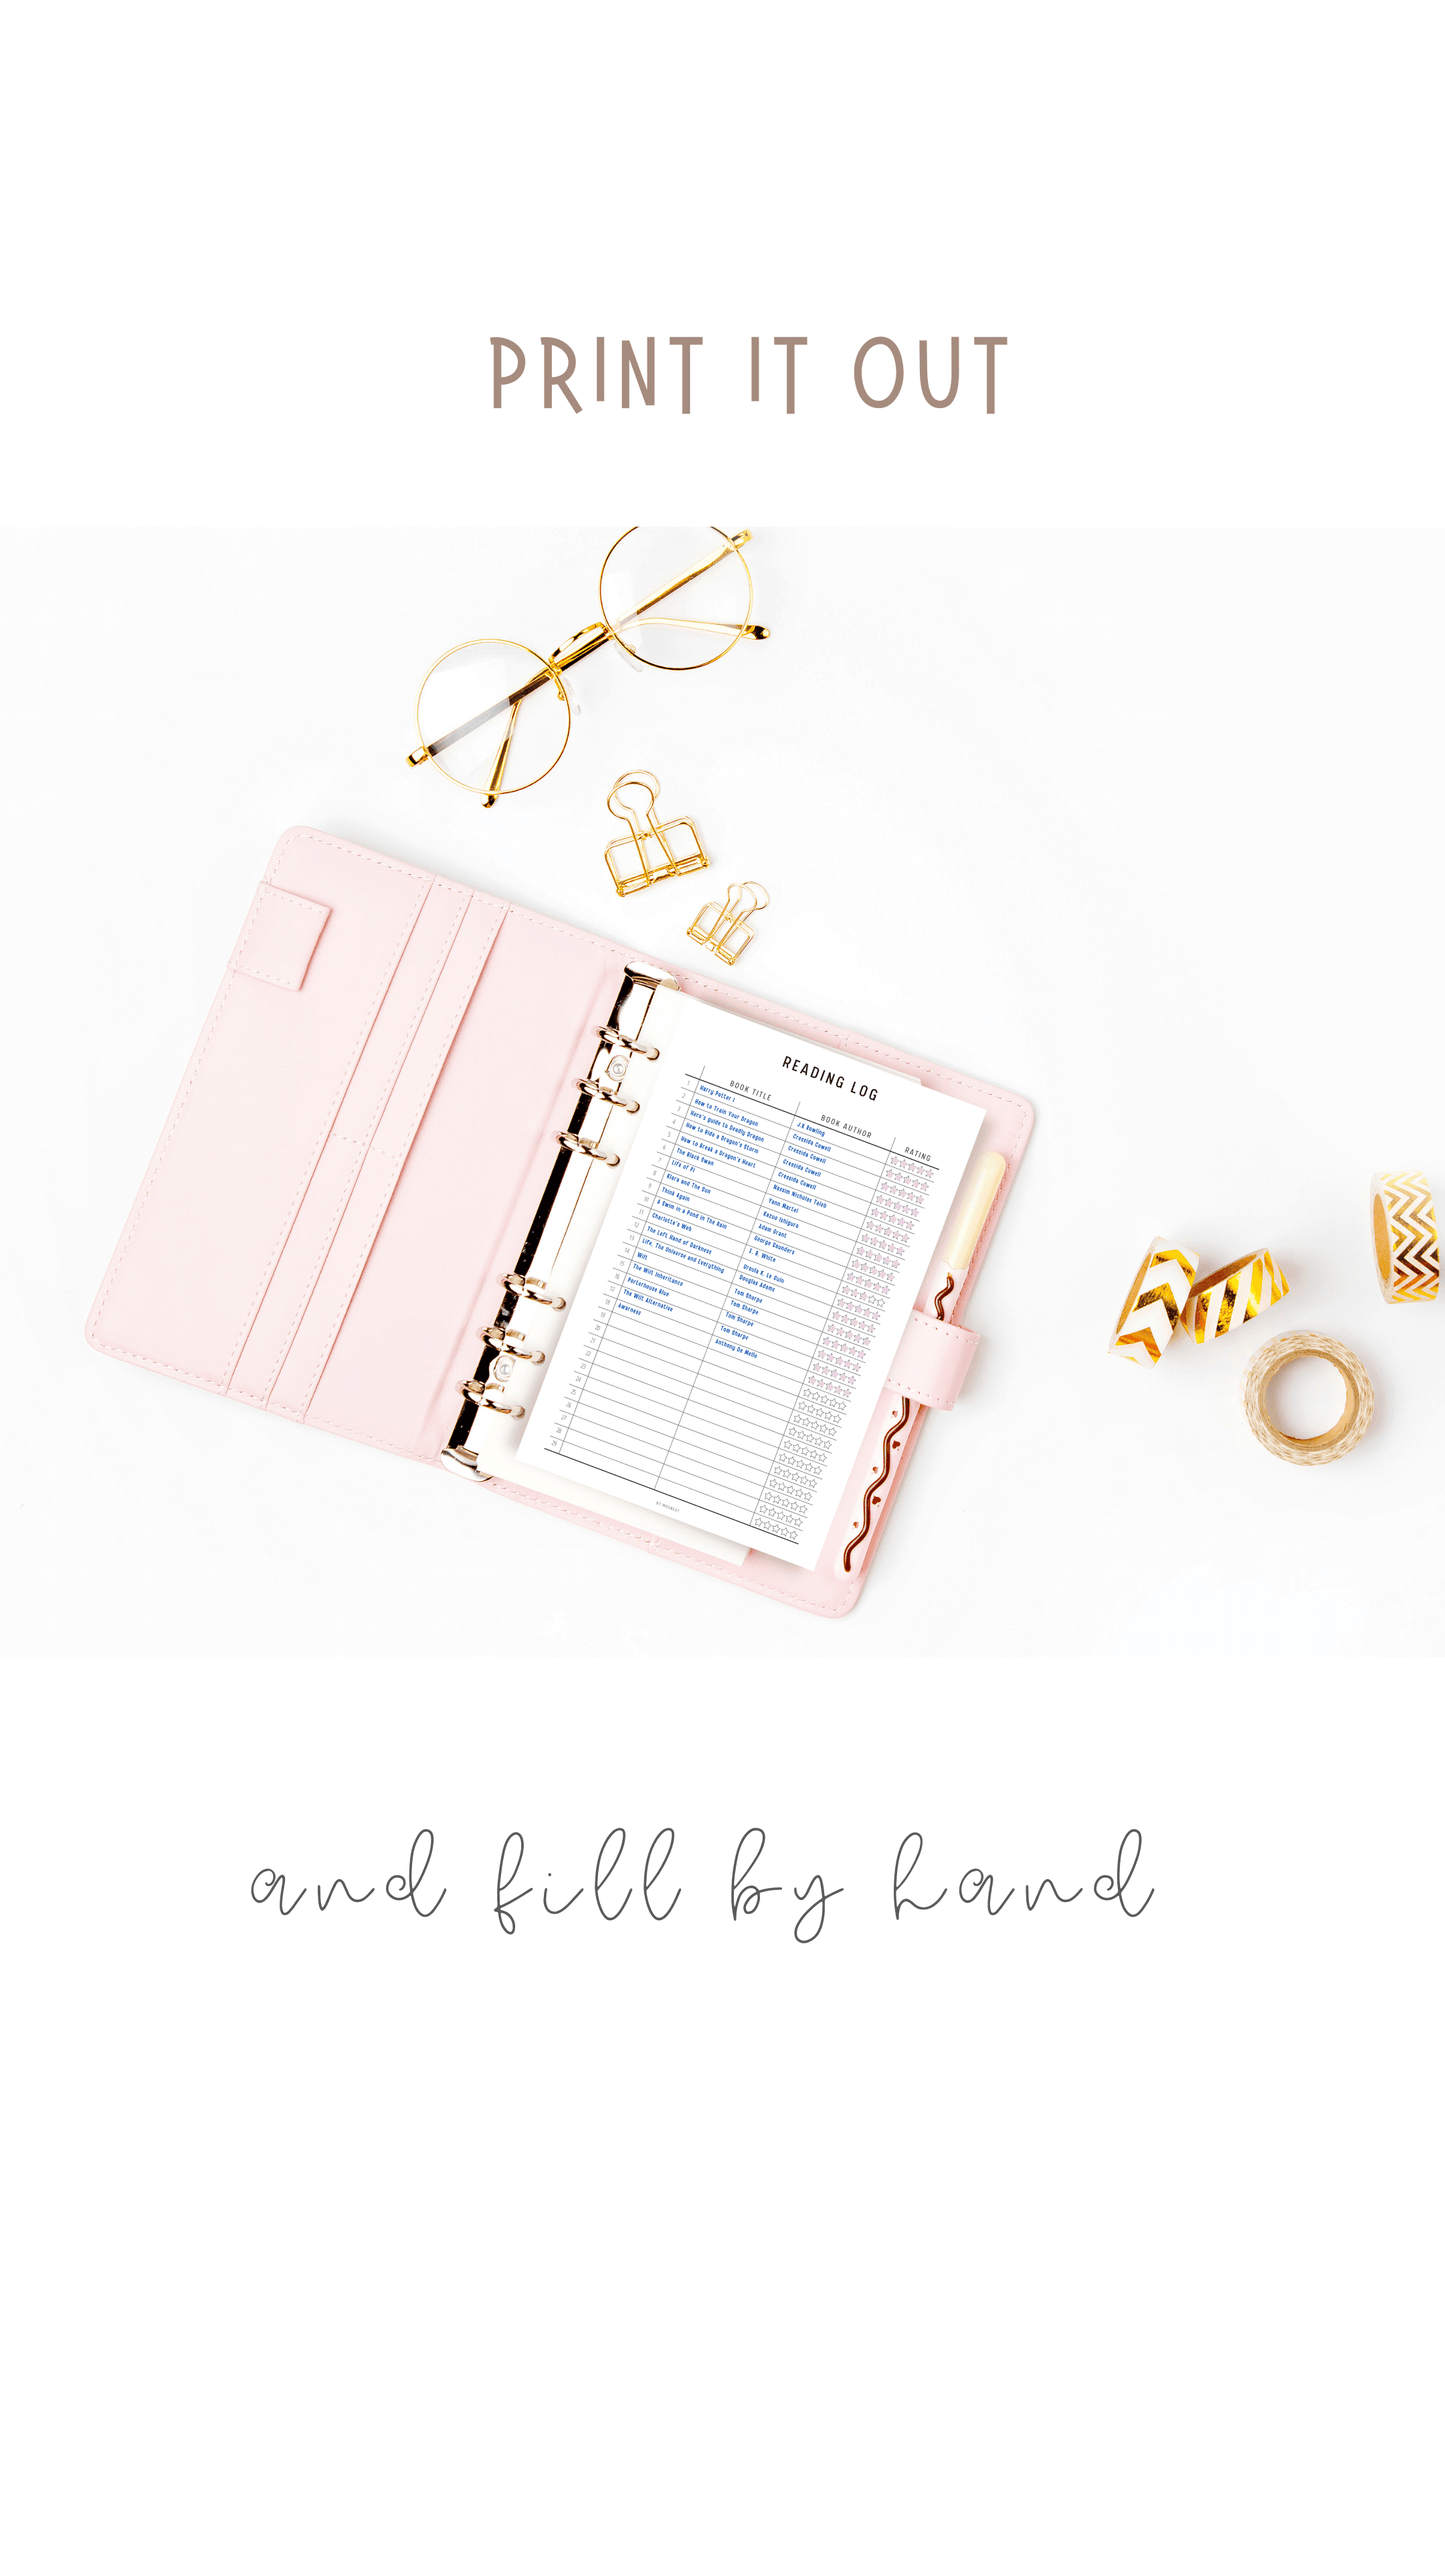 PRINT IT OUT
READING LOG
BOOK TITLE BOOK AUTHOR RATING
1 Harry Potter 1 J.K Rowling
2 How to Train Your Dragon Cressida Cowell
3 Hero's guide to Deadly Dragon Cressida Cowell
4 How to Ride a Dragon's Storm Cressida Cowell
5 How to Break a Dragon's Heart Cressida Cowell
6 The Black Swan Nassim Nicholas Taleb
7 Life of Pi Yann Martel
8 Klara and The Sun Kazuo Ishiguro
9 Think Again Adam Grant
10 A Swim in a Pond in The Rain George Saunders
11 Charlotte's Web E. B. White
12 The Left Hand of Darkness Ursula K. Le Guin
13 Life, The Universe and Everything Douglas Adams
14 Wilt Tom Sharpe
15 The Wilt Inheritance Tom Sharpe
16 Porterhouse Blue Tom Sharpe
17 The Wilt Alternative Tom Sharpe
18 Awarness Anthony De Mello
19
20
21
22
23
24
25
26
27
28
29
and fill by hand